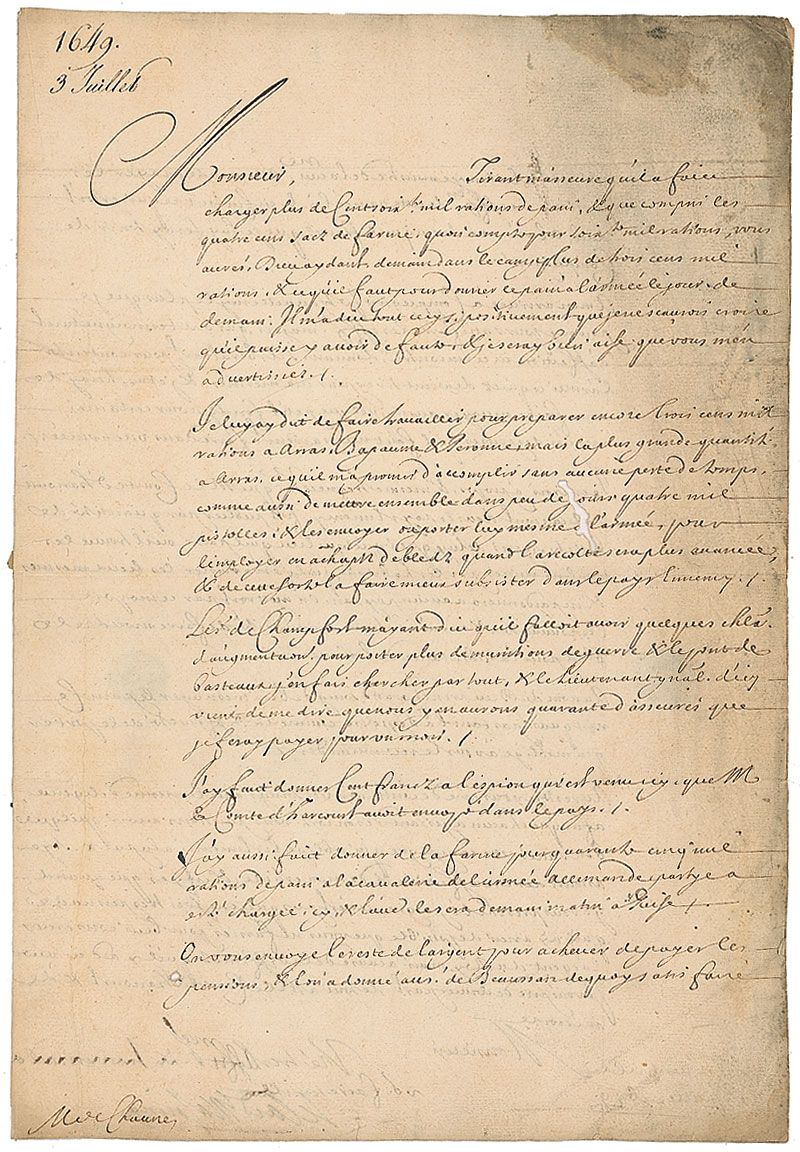 1649.
3 Juillet
Monsieur, Tirant m'asseure qu'il a faict
charger plus de Cent soix.te mil rations de pain, & que compris les
quatre cens sacz de farine, qu'on compte pour soix.te mil rations, vous
aurés, Dieu aydant, demain dans le camp plus de trois cens mil
rations, & ce qu'il faut pour donner le pain a l'armée le jour de
demain. Il m'a dict tout cecy si positivement que je ne sçaurois croire
qu'il puisse y avoir de faute, & je seray bien aise que vous m'en
advertissiés. /.
Je luy ay dit de faire travailler pour preparer encore trois cens mil
rations a Arras, Bapaume & Peronne, mais la plus grande quantité
a Arras, ce qu'il m'a promis d'accomplir sans aucune perte de temps,
comme aussi de mettre ensemble dans peu de jours quatre mil
pistolles, & les envoyer ou porter luy mesme a l'armée, pour
l'employer en achaptz de bledz quand la recolte sera plus avancée,
& de cette sorte la faire mieux subsister dans le pays Ennemy. /.
Le s.r de Champfort m'ayant dict qu'il falloit avoir quelques
d'augmentaon. pour porter plus de munitions de guerre & le pont de
basteaux, j'en fais chercher par tout, & le Lieutenant gnal. d'icy
vient de me dire que nous y en aurons quarante d'asseurés que
je feray payer pour un mois. /.
J'ay faict donner Cent francz a l'espion qui est venu icy, que M
le Comte d'Harcourt avoit envoyé dans le pays. /.
J'ay aussi faict donner de la farine pour quarante cinq mil
rations de pain a la cavalerie de l'armée partye a
esté chargée icy, & l'autre le sera demain matin a Guise /.
On vous envoye le reste de l'argent pour achever de payer les
pensions, & l'on a donné au s.r de Beaussan de quoy satisfaire
M de Chaune,